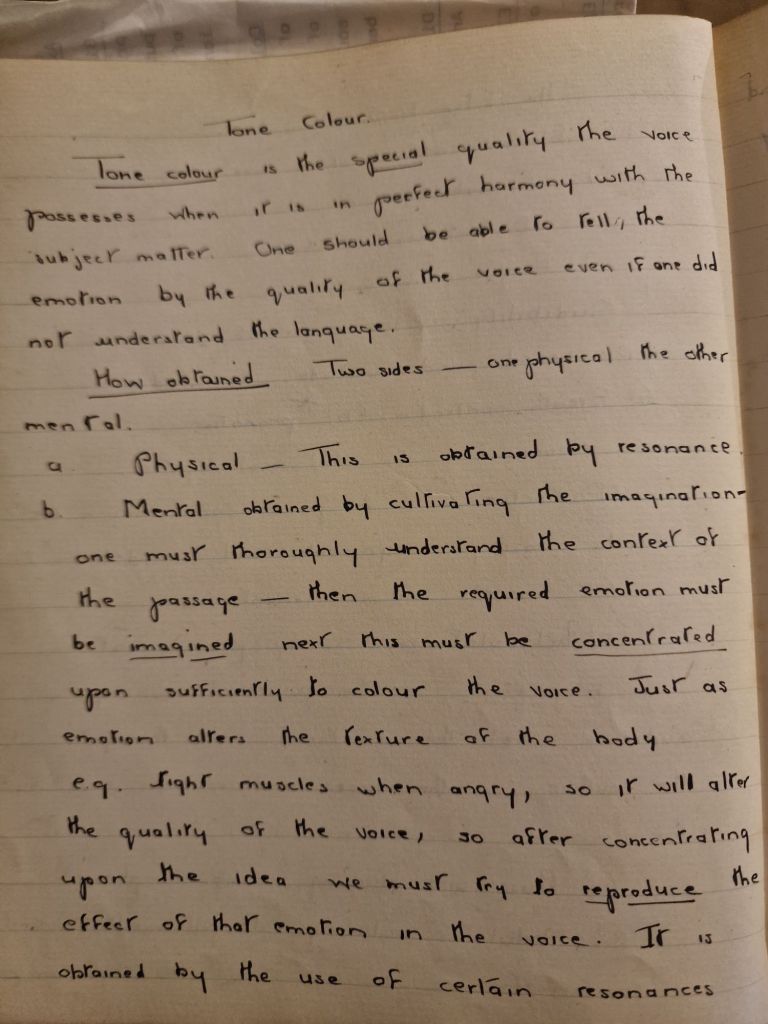 Tone Colour.
Tone colour is the special quality the voice
possesses when it is in perfect harmony with the
subject matter. One should be able to tell, the
emotion by the quality of the voice even if one did
not understand the language.
How obtained Two sides — one physical the other
mental.
a Physical — This is obtained by resonance.
b. Mental obtained by cultivating the imagination-
one must thoroughly understand the context of
the passage — then the required emotion must
be imagined next this must be concentrated
upon sufficiently to colour the voice. Just as
emotion alters the texture of the body
e.g. tight muscles when angry, so it will alter
the quality of the voice, so after concentrating
upon the idea we must try to reproduce the
effect of that emotion in the voice. It is
obtained by the use of certain resonances